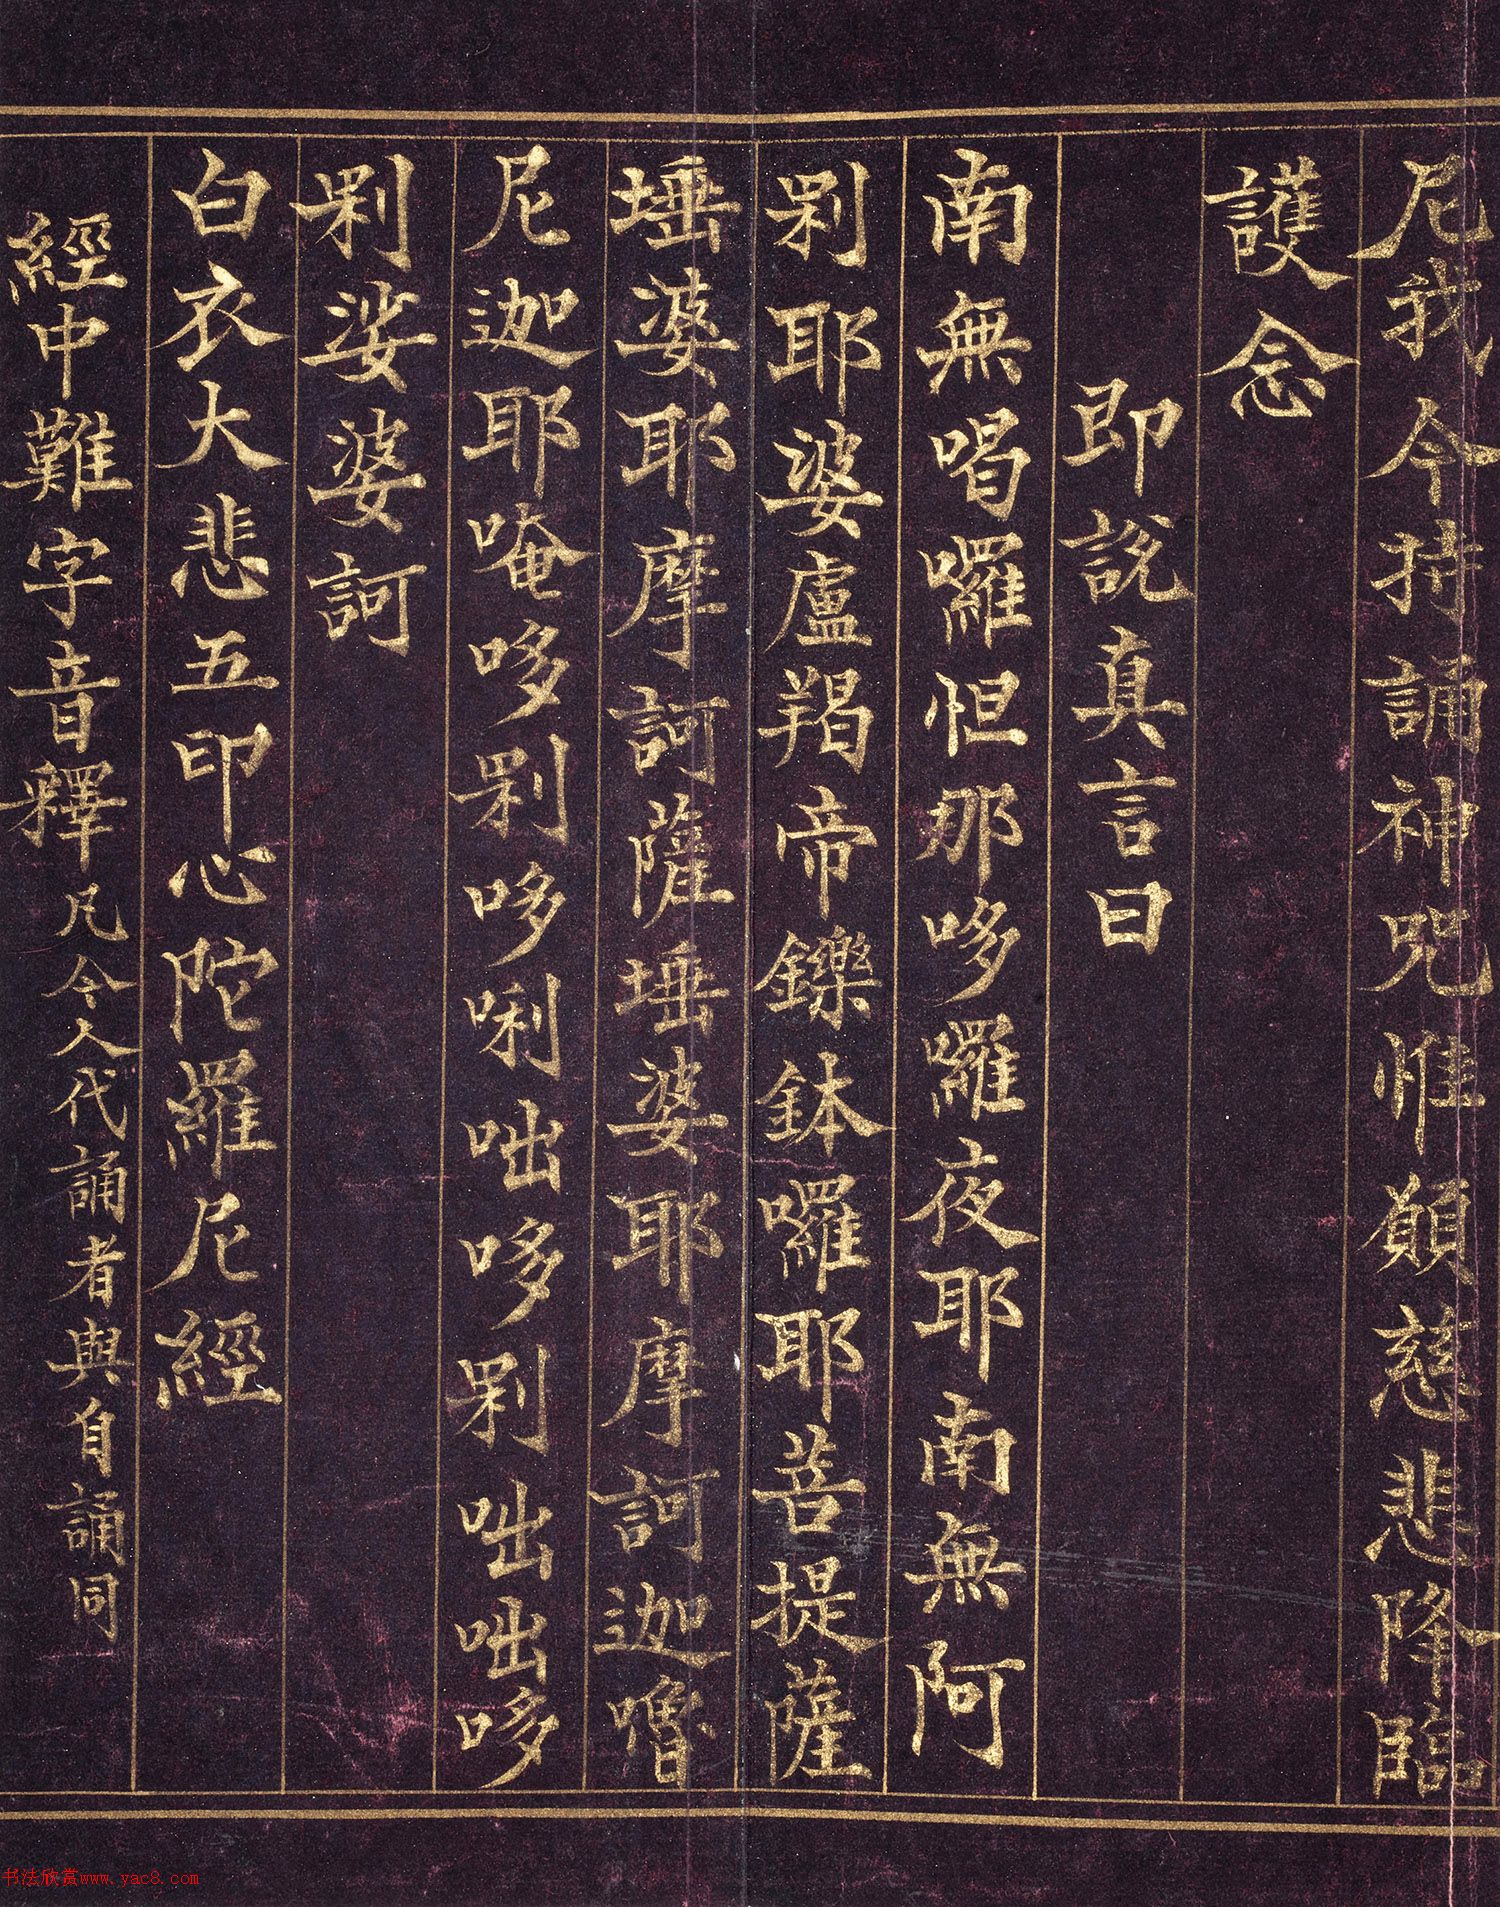 尼我今持誦神咒惟願慈悲降臨
護念
即說真言曰
南無喝囉怛那哆囉夜耶南無阿
剁耶婆盧羯帝鑠鉢囉耶菩提薩
埵婆耶摩訶薩埵婆耶摩訶迦嚕
尼迦耶唵哆剁哆唎咄哆剁咄咄哆
剁娑婆訶
白衣大悲五印心陀羅尼經
經中難字音釋凡今人代誦者與自誦同
书法欣赏www.yac8.com